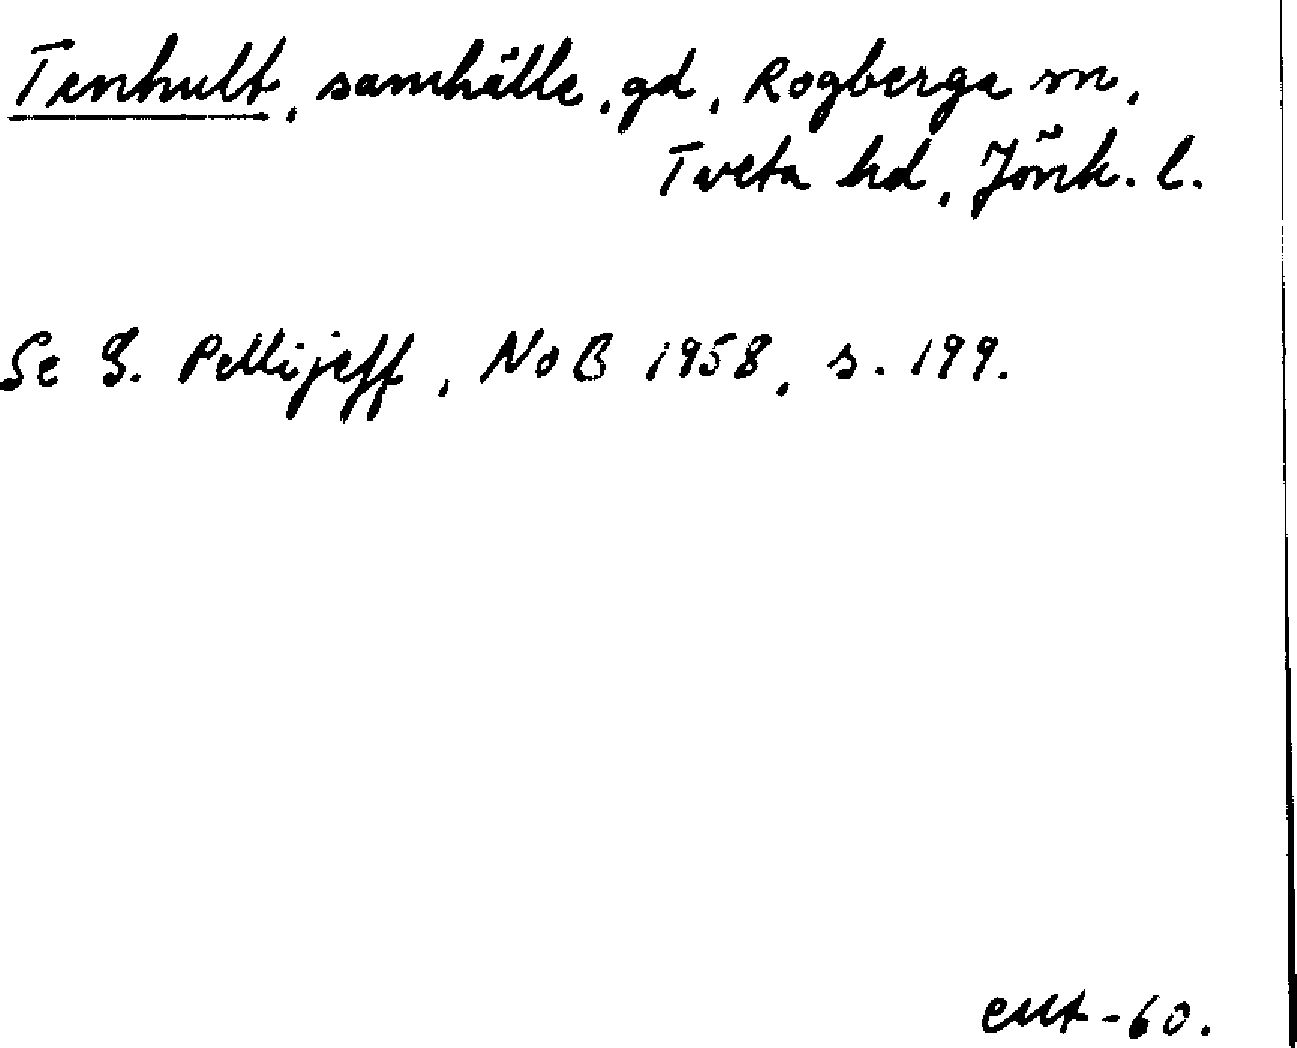 Tenhult, samhälle, gd, Rogberga sn,
Tveta hd, Jönk. l.
Se G. Pellijeff, NoB 1958, s. 199.
-60.